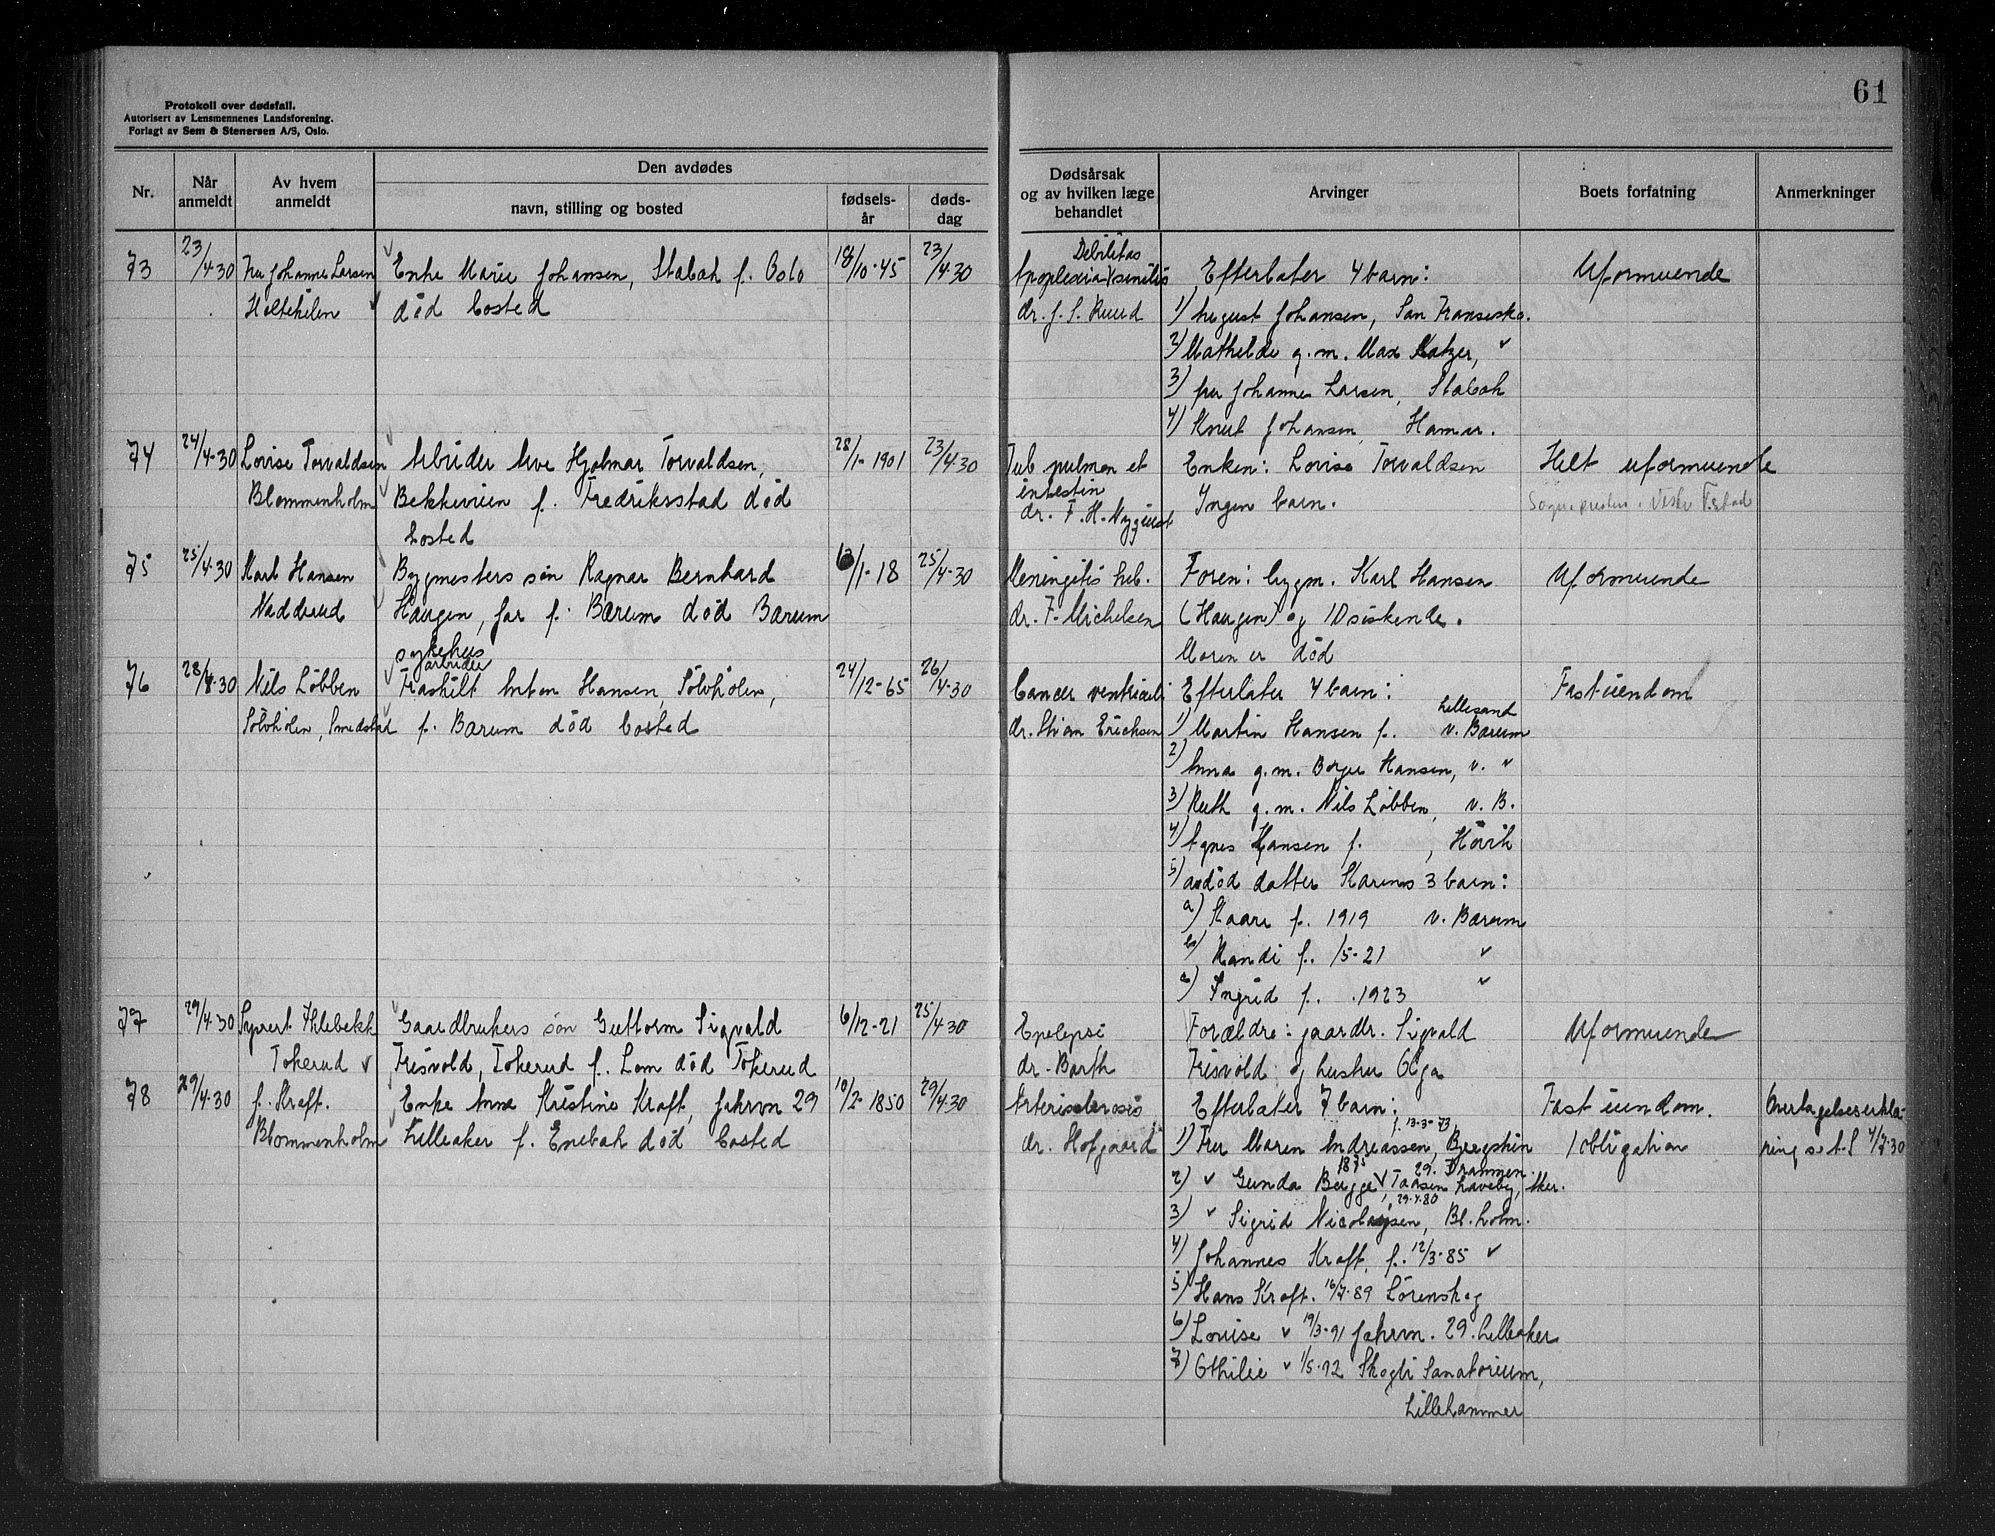 Protokoll over dødsfall.
Autorisert av Lensmennenes Landsforening.
Forlagt av Sem & Stenersen A/S, Oslo.
Nr.
Når anmeldt
Av hvem anmeldt
Den avdødes
navn, stilling og bosted
fødsels-
år
døds-
dag
73
23/4-30
Fru Johanne Larsen
Høltekilen
Enke Marie Johansen, Stabæk f. Oslo
død bosted
18/10-45
23/4-30
74
24/4-30
Lovise Torvaldsen
Blommenholm
Arbeider Arve Hjalmar Torvaldsen,
Bekkeveien f. Fredriksstad død
bosted
28/1-1901
23/4-30
75
25/4-30
Karl Hansen
Nadderud
Bygmesters søn Ragnar Bernhard
Haugen, for f. Bærum død Bærum
sykehus
/1-18
25/4-30
76
28/4-30
Nils Løbben
Sølvhølen, Smedstad
arbeider
Fraskilt Anton Hansen, Sølvhølen,
f. Bærum død bosted
24/12-65
26/4-30
77
29/4-30
Syvert Iklebekk
Tokerud
Gaardbrukers søn Guttorm Sigvald
Frisvold, Tokerud f. Lom død Tokerud
6/12-21
25/4-30
78
29/4-30
f. Kraft.
Blommenholm
Enke Anne Kristine Kraft, Jahrvn 29
Lilleaker f. Enebak død bosted
10/2-1850
29/4-30
61
Dødsårsak
og av hvilken læge
behandlet
Arvinger
Boets forfatning
Anmerkninger
Debilitas
Apoplexia senilis
dr. J. S. Ruud
Efterlater 4 barn:
1) August Johansen, San Fransisko.
2) Mathilde g.m. Max Katzer, "
3) fru Johanne Larsen, Stabæk
4) Knut Johansen, Hamar.
Uformuende
Tub. pulmon et
intestin
dr. F. H. Nyquist
Enken: Lovise Torvaldsen
Ingen barn.
Helt uformuende
Sognepresten i Vestre F.stad
Meningitis tub.
dr. F. Michelsen
Foren: bygm. Karl Hansen
(Haugen) og 10 søskende.
Moren er død
Uformuende
Cancer ventriculi
dr. Stian Erichsen
Efterlater 4 barn:
Lillesand
1) Martin Hansen f. v. Bærum
2) Anna g.m. Borger Hansen, v. "
3) Ruth g.m. Nils Løbben, v. B.
4) Agnes Hansen f. , Høvik
5) avdød datter Karens 3 barn:
a) Kaare f. 1919 v. Bærum
b) Randi f. /5-21 "
c) Ingrid f. 1923 "
Fast eiendom
Epelepsi
dr. Barth
Forældre: gaardbr. Sigvald
Frisvold og hustru Olga
Uformuende
Arteriosclerosis
dr. Hofgaard
Efterlater 7 barn:
f. 13-3-73,
1) Fru Maren Andreassen, Bergstien
1875 29. Drammen.
2) " Gunda Berge, Taasen haveby, Aker.
f. 29.4.80
3) " Sigrid Nicolaysen, Bl.holm.
4) Johannes Kraft, f. 12/3-85 "
5) Hans Kraft. 16/7-89 Lørenskog
6) Louise " 19/3-91 Jahrvn. 29. Lilleaker
7) Othilie " 1/5-92 Skogli Sanatorium,
Lillehammer
Fast eiendom.
1 obligation
Overtagelseserklæ-
ring s. t. S 4/7-30